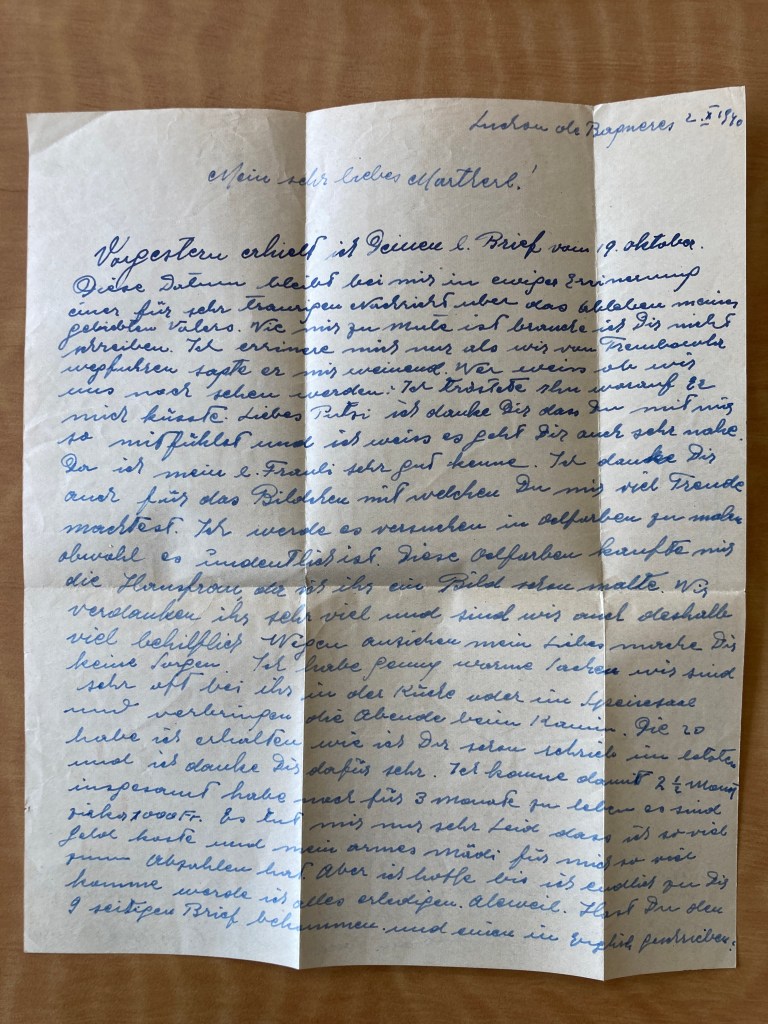 Luchon de Bagneres 2. X 1940
Mein sehr liebes Martherl!
Vorgestern erhielt ich Deinen l. Brief vom 19. oktober.
Diese Datum bleibt bei mir in ewiger Errinerung
einer für sehr traurigen Nachricht über das Ableben meines
geliebten Vaters. Wie mir zu mute ist brauche ich Dir nicht
schreiben. Ich errinere mich nur als wir von Trembowla
wegfuhren sagte er mir weinend. Wer weiss ob wir
uns noch sehen werden: Ich tröstete ihn worauf Er
mich küsste. Liebes Putzi ich danke Dir dass Du mit mir
so mitfühlst und ich weiss es geht Dir auch sehr nahe.
Da ich mein l. Frauli sehr gut kenne. Ich danke Dir
auch für das Bildchen mit welchen Du mir viel Freude
machtest. Ich werde es versuchen in oelfarben zu malen
obwohl es undentlich ist. Diese Oelfarben kaufte mir
die Hausfrau da ich ihr ein Bild schon malte. Wir
verdanken ihr sehr viel und sind wir auch deshalb
viel behilflich Wegen anziehen mein Liebes mache Dir
keine Sorgen. Ich habe genug warme Sachen wir sind
sehr oft bei ihr in der Küche oder im Speisesaal
und verbringen die Abende beim Kamin. Die 20
habe ich erhalten wie ich Dir schon schrieb im letzten
und ich danke Dir dafür sehr. Ich konne damit 2 ½ Monat
insgesamt habe noch für 3 monate zu leben es sind
zirka 1000 Fr. Es tut mir nur sehr Leid dass ich so viel
Geld koste und mein armes mädi für mich so viel
zum Abzahlen hat. Aber ich hoffe bis ich endlich zu Dir
komme werde ich alles erledigen. Aleweil. Hast Du den
9 seitigen Brief bekommen. und einen in English geschrieben.